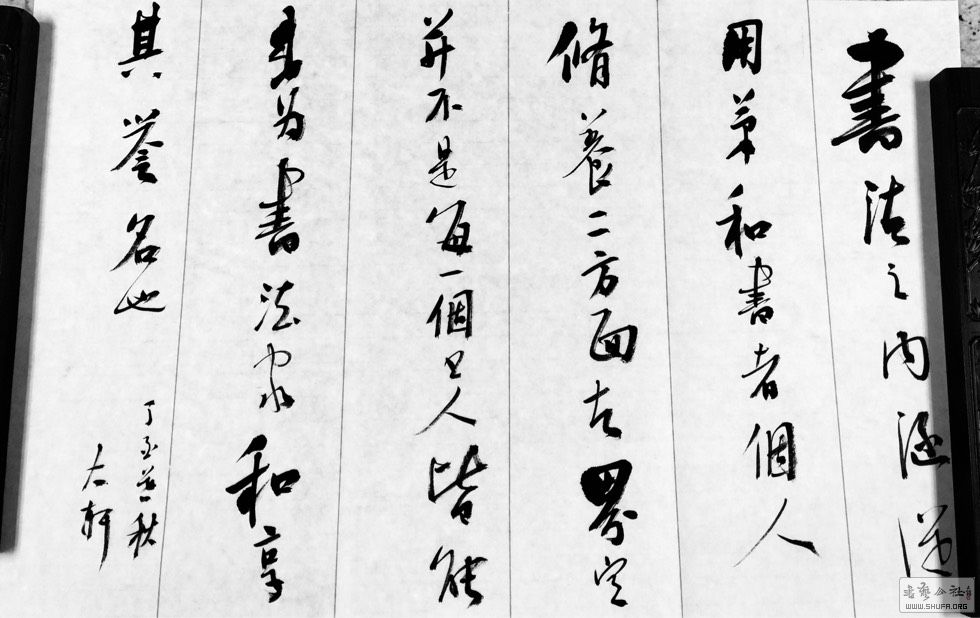 書法之内涵從
用筆和書者個人
脩養二方面去界定
并不是每一個人皆能
为書法家和享
其譽名也
丁酉秋
軒
書艺公社
WWW.SHUFA.ORG